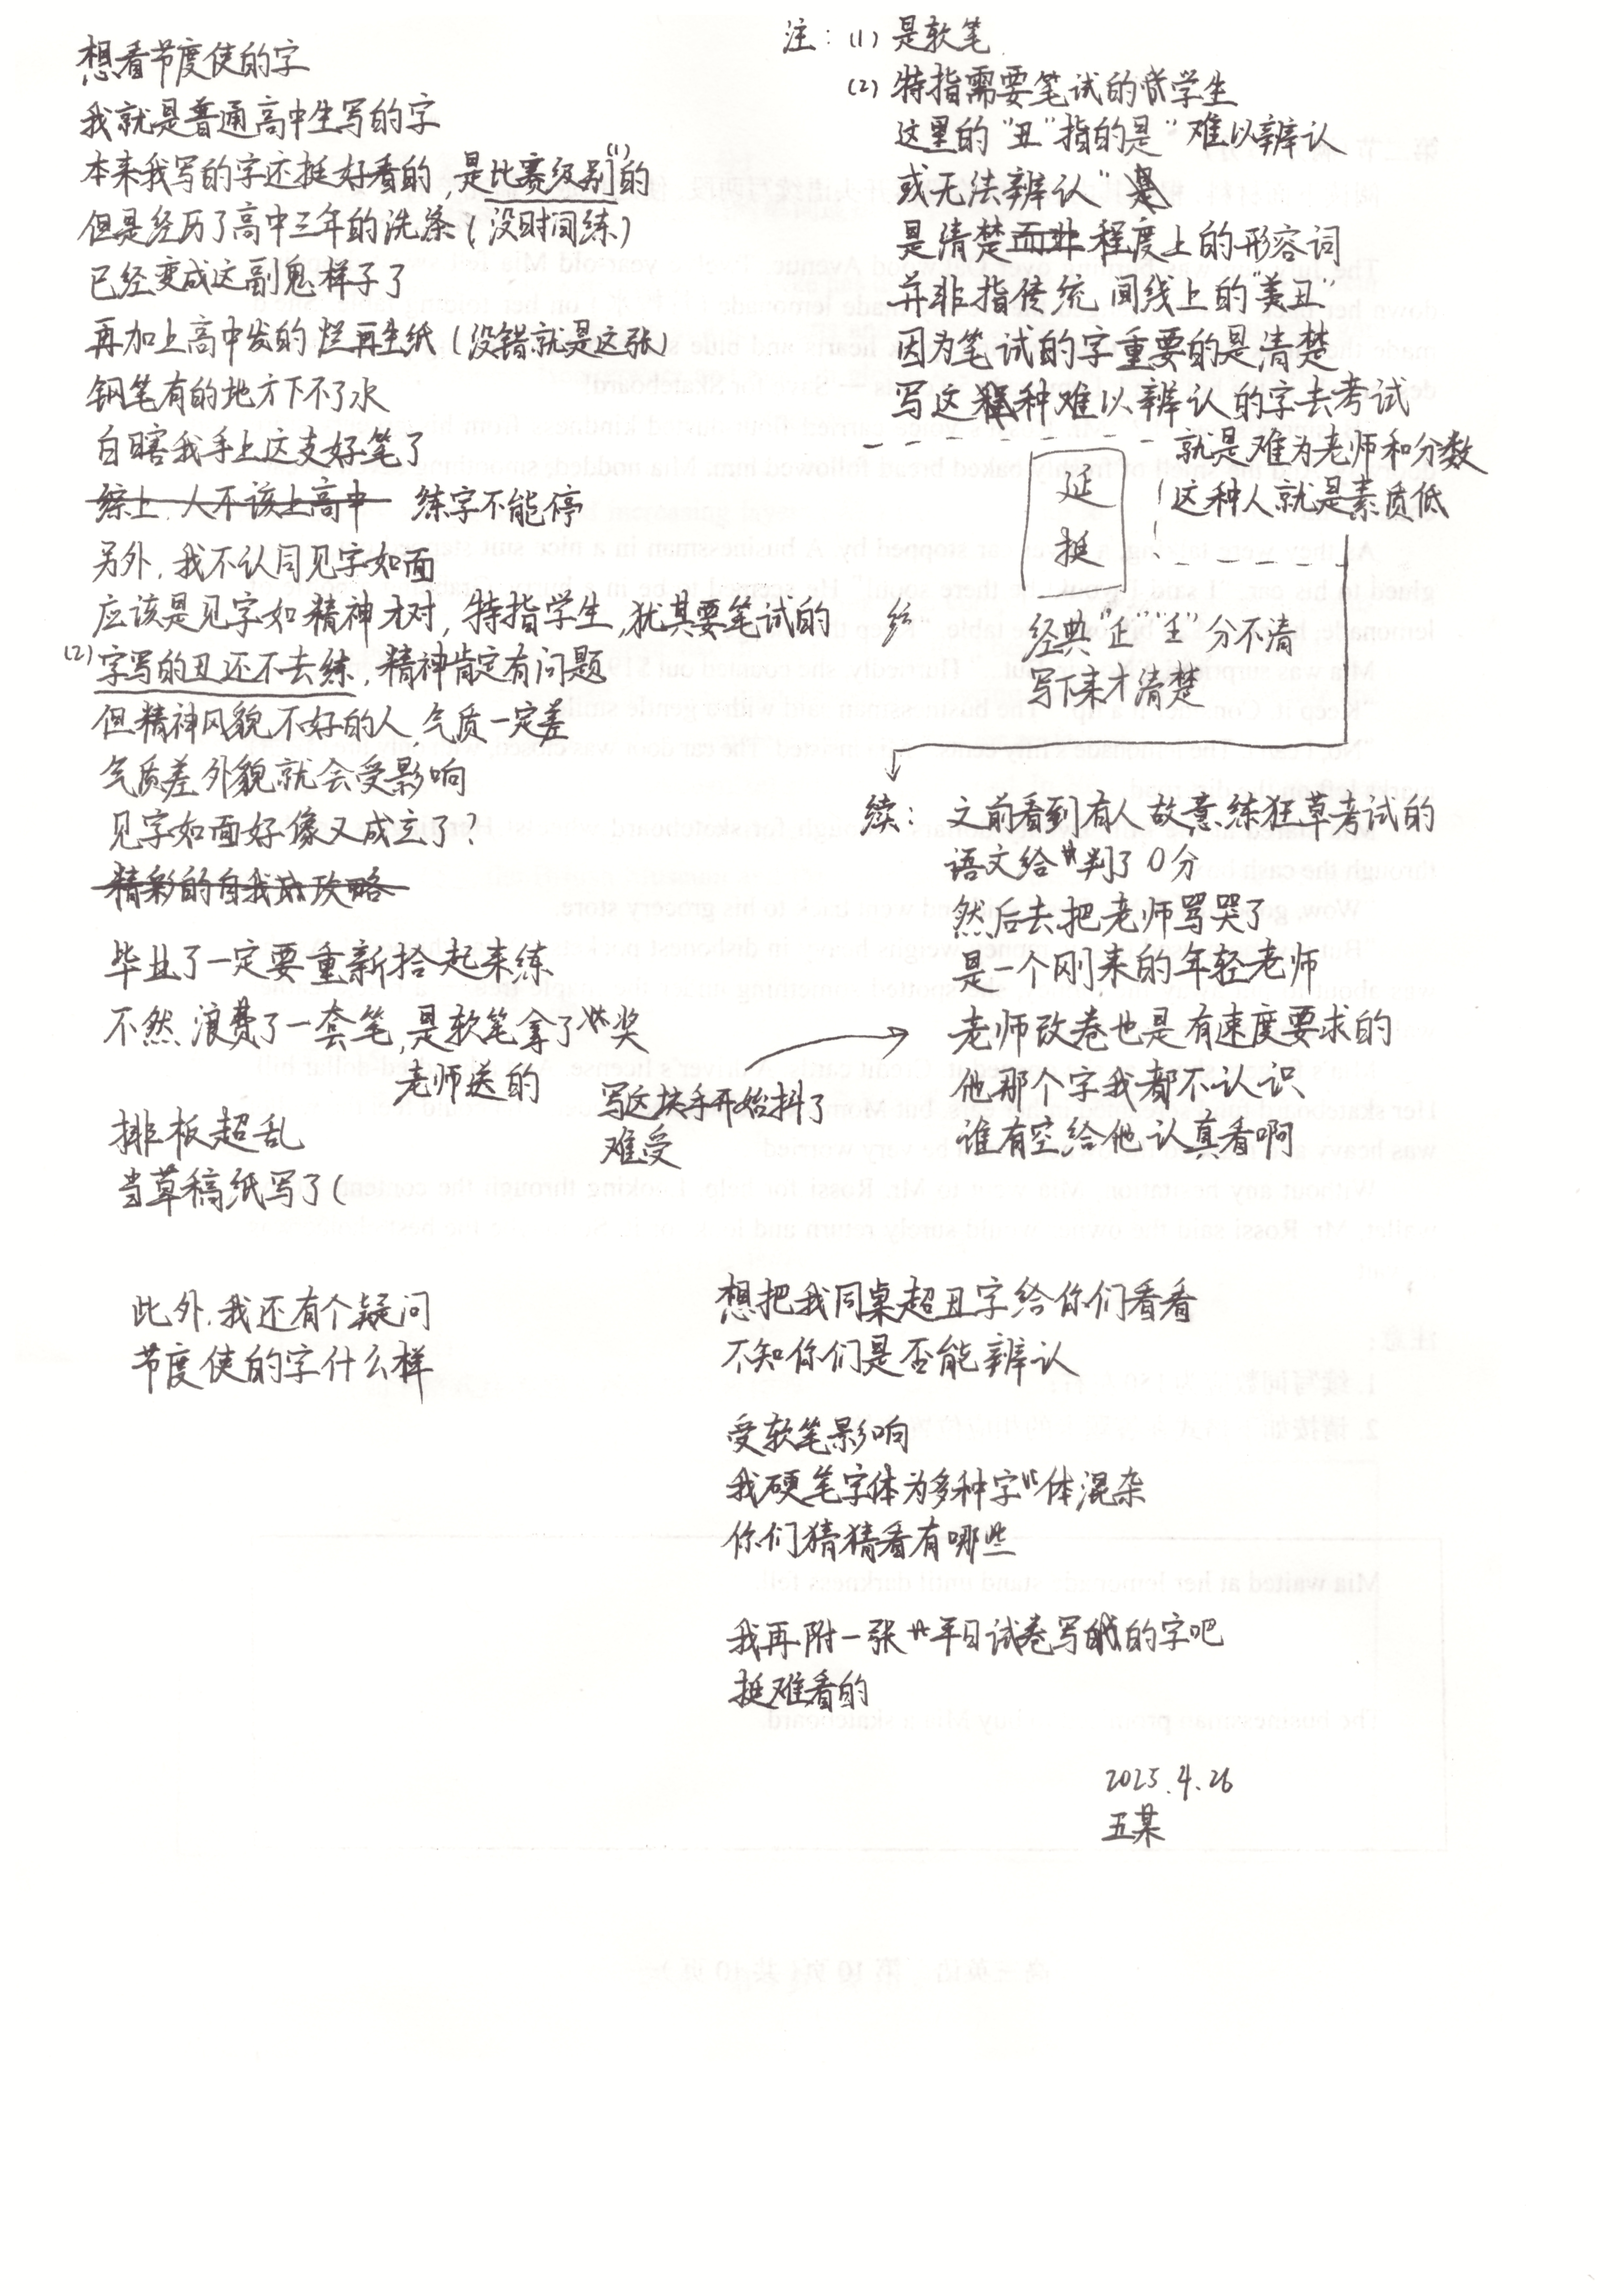 想看节度使的字
我就是普通高中生写的字
本来我写的字还挺好看的,是比赛级别的(1)
但是经历了高中三年的洗涤(没时间练)
已经变成这副鬼样子了
再加上高中发的烂再生纸(没错就是这张)
钢笔有的地方下不了水
白瞎我手上这支好笔了
综上,人不该上高中 练字不能停
另外,我不认同见字如面
应该是见字如精神才对,特指学生,犹其要笔试的
(2)字写的丑还不去练,精神肯定有问题
但精神风貌不好的人气质一定差
气质差外貌就会受影响
见字如面好像又成立了?
精彩的自我攻略
毕业了一定要重新拾起来练
不然浪费了一套笔,是软笔拿了奖
老师送的
写这块手开始抖了
难受
排板超乱
当草稿纸写了(
此外,我还有个疑问
节度使的字什么样
注:(1)是软笔
(2)特指需要笔试的学生
这里的"丑"指的是"难以辨认
或无法辨认"
是清楚而非程度上的形容词
并非指传统间线上的"美丑"
因为笔试的字重要的是清楚
写这种难以辨认的字去考试
就是难为老师和分数
这种人就是素质低
延
挺
经典"𠃊""王"分不清
写下来才清楚
续:之前看到有人故意练狂草考试的
语文给判了0分
然后去把老师骂哭了
是一个刚来的年轻老师
老师改卷也是有速度要求的
他那个字我都不认识
谁有空给他认真看啊
想把我同桌超丑字给你们看看
不知你们是否能辨认
受软笔影响
我硬笔字体为多种字体混杂
你们猜猜看有哪些
我再附一张平日试卷写的字吧
挺难看的
2025.4.26
五某